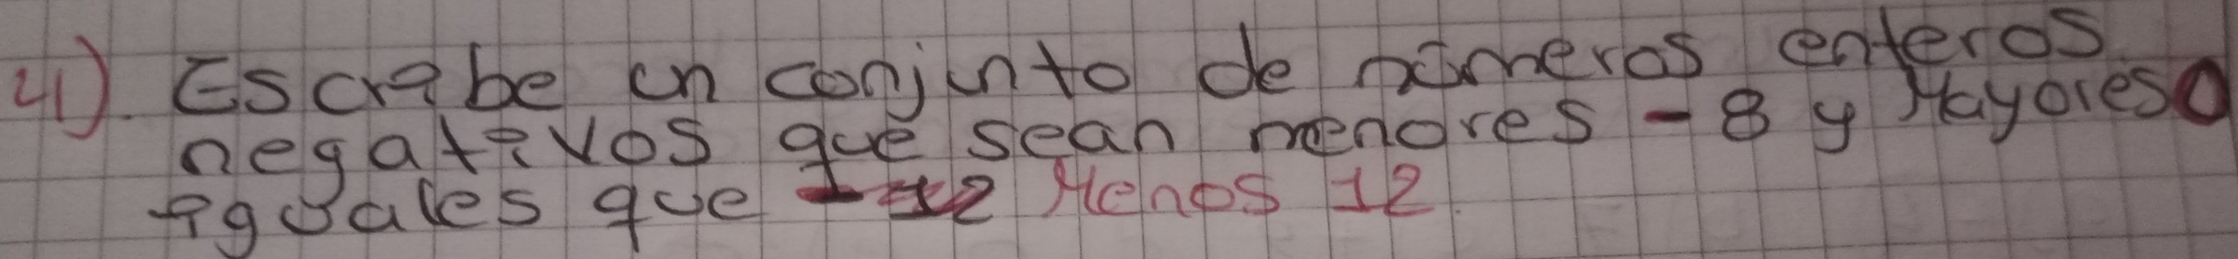 4). Escribe un conjunto de números enteros
negativos que sean menores -8 y Mayores o
iguales que Menos 12.